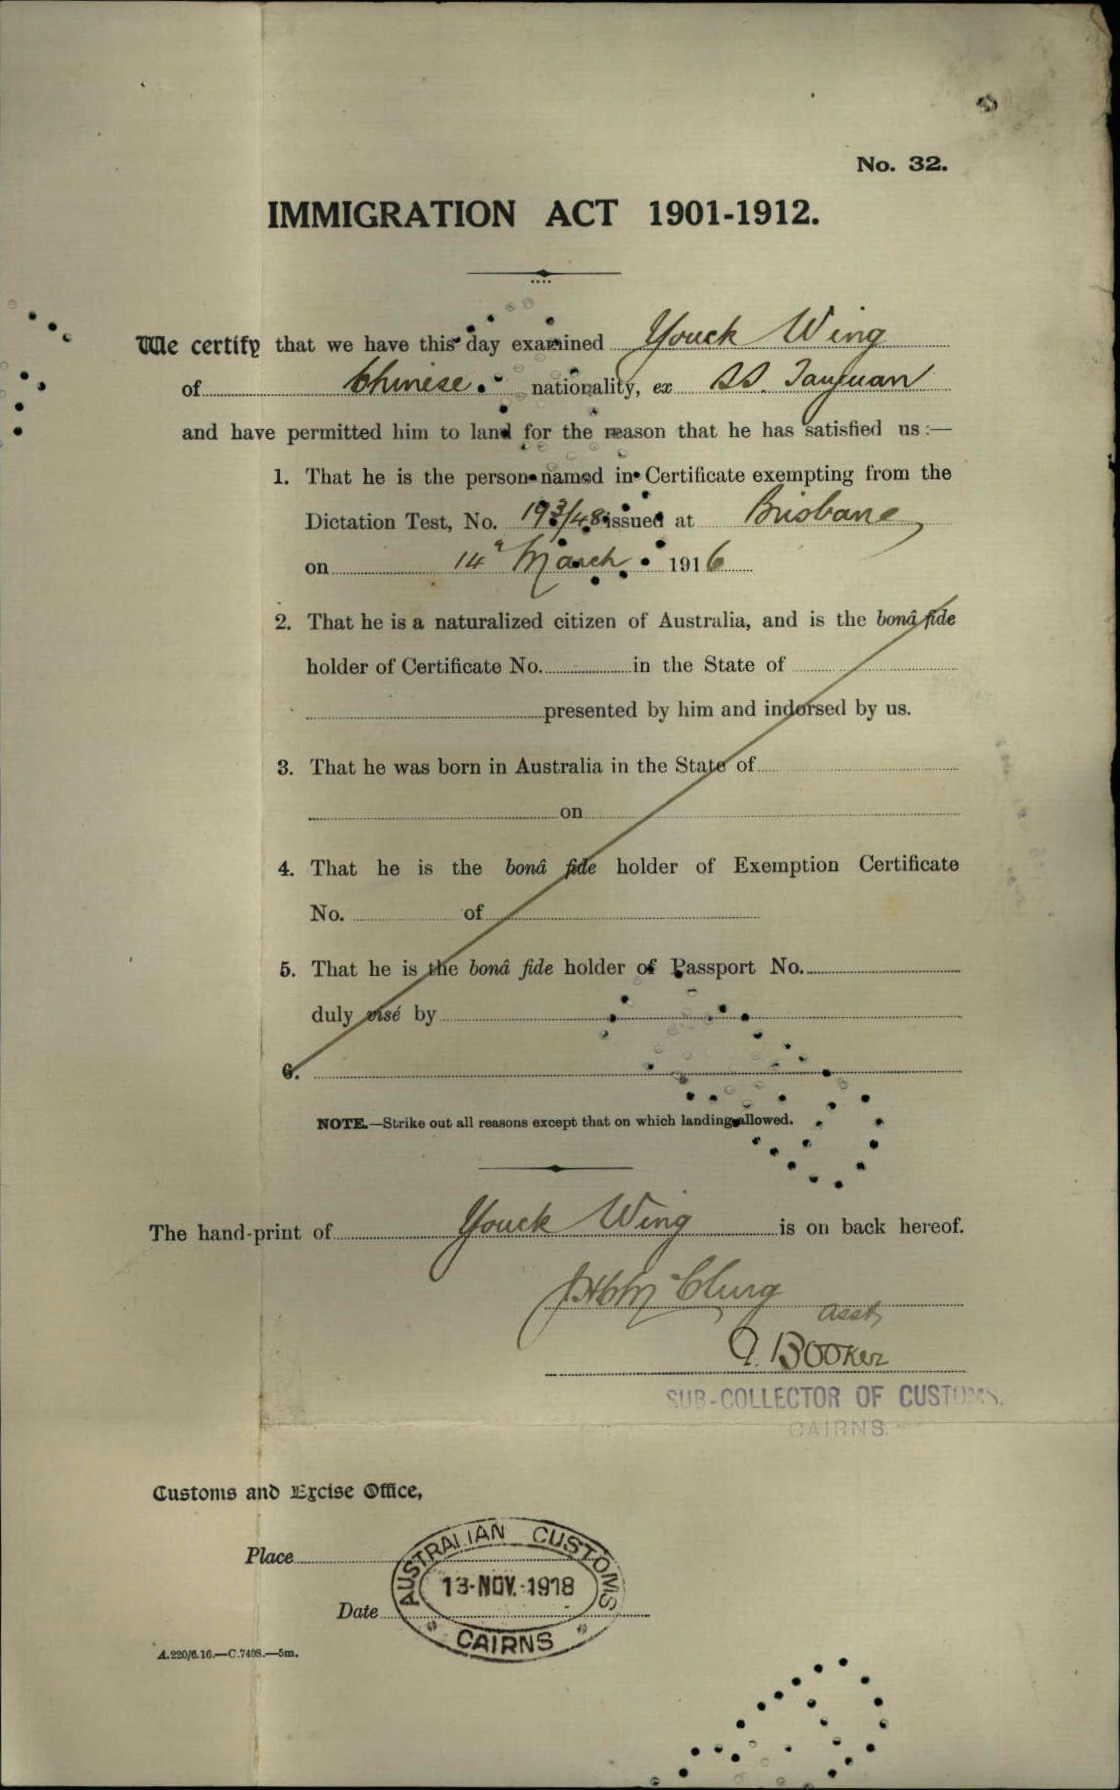 No. 32.
IMMIGRATION ACT 1901-1912.
We certify that we have this day examined Youck Wing
of Chinese nationality, ex SS. Taiyuan
and have permitted him to land for the reason that he has satisfied us:—
1. That he is the person named in Certificate exempting from the
Dictation Test, No. 193/48 issued at Brisbane
on 14 March 1916
2. That he is a naturalized citizen of Australia, and is the bonâ fide
holder of Certificate No. in the State of
presented by him and indorsed by us.
3. That he was born in Australia in the State of
on
4. That he is the bonâ fide holder of Exemption Certificate
No. of
5. That he is the bonâ fide holder of Passport No.
duly visé by
6.
NOTE.—Strike out all reasons except that on which landing allowed.
The hand-print of Youck Wing is on back hereof.
McClurg
Asst
A. Booker
SUB-COLLECTOR OF CUSTOMS.
CAIRNS.
Customs and Excise Office,
Place
AUSTRALIAN CUSTOMS
13-NOV.-1918
Date
CAIRNS
A.220/6.16.—C.7408.—5m.